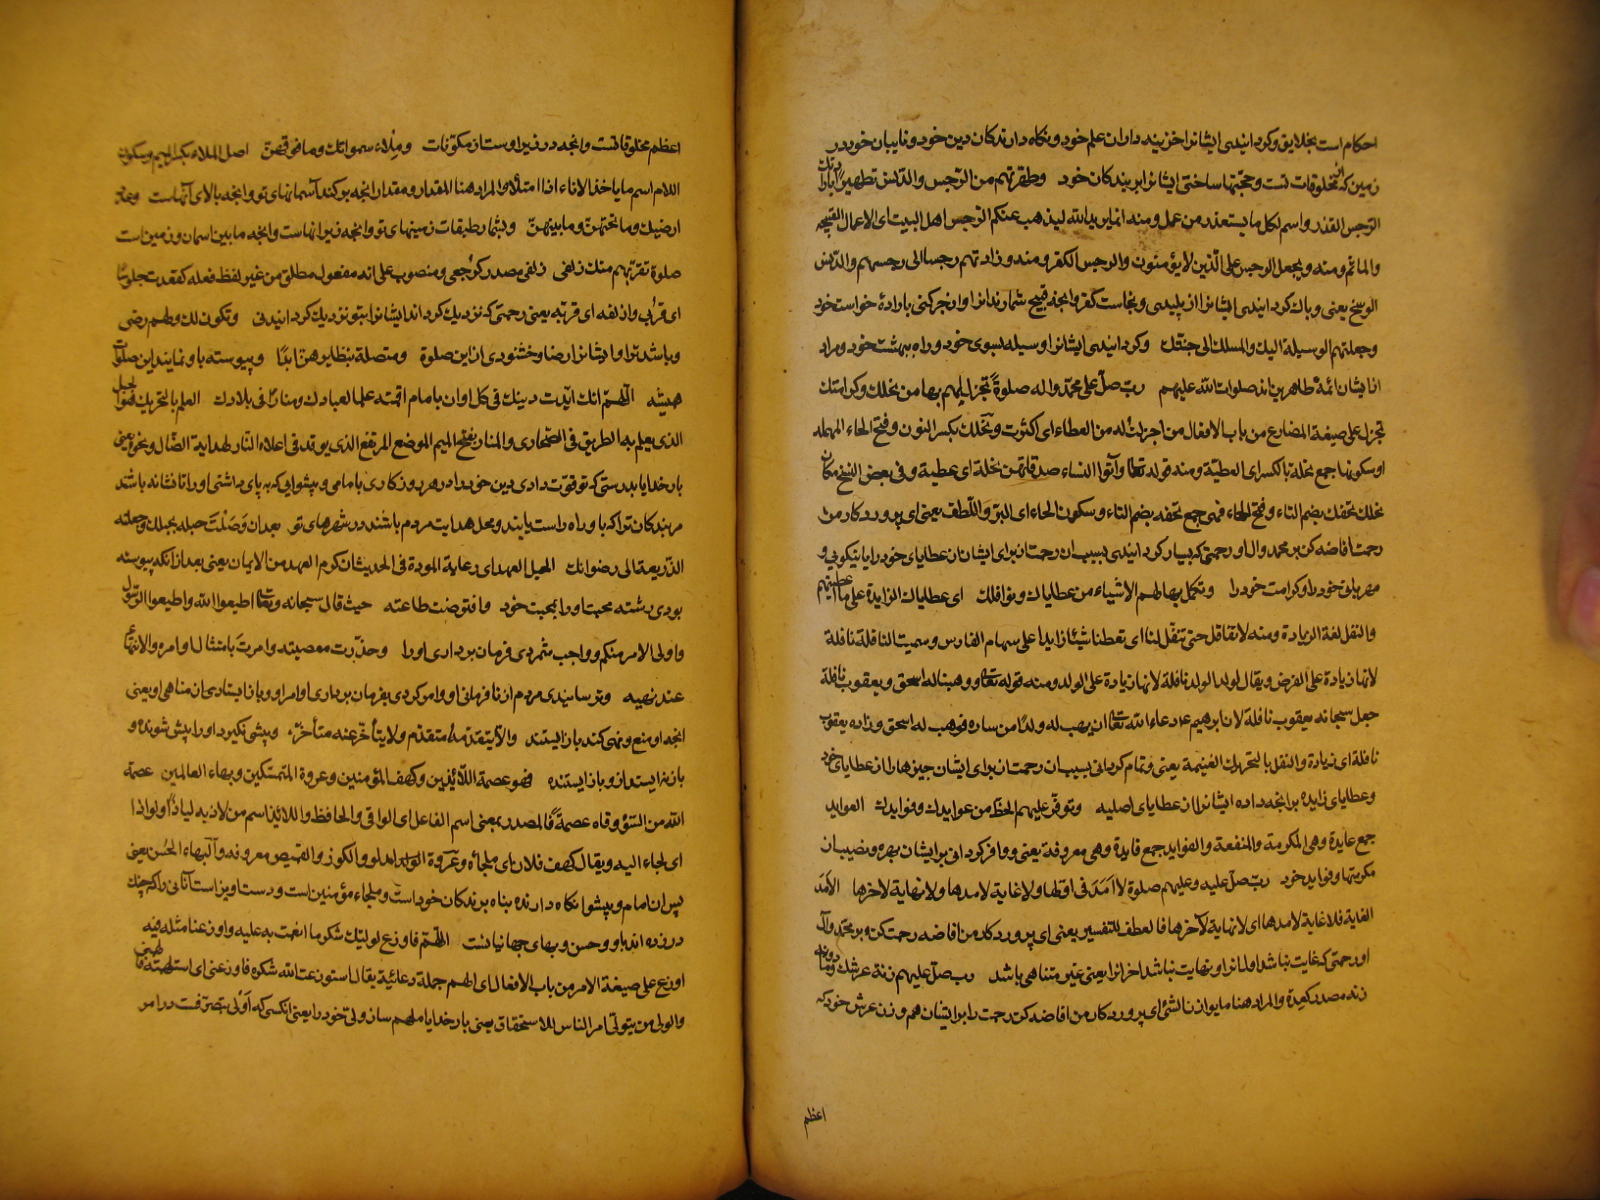 احكام است بخلايق وكردانيدى ايشانرا خزينه داران علم خود ونكاه دارندكان دين خود ونايبان خود در
زمين كه از مخلوقات تست وحجتها ساختى ايشانرا بر بندكان خود وطهرتهم من الرجس والدنس تطهيرا بارادتك
الرجس القذر واسم لكل ما يستقذر من عمل ومنه انما يريد الله ليذهب عنكم الرجس اهل البيت اى الاعمال القبيحه
والمآثم ومنه ويجعل الرجس على الذين لا يؤمنون والرجس الكفر ومنه وزادتهم رجسا الى رجسهم والدنس
الوسخ يعنى وپاك كردانيدى ايشانرا از پليدى ونجاست كفر وانچه قبيح شمارند انرا وازجر كنى بارادهٔ خواست خود
وجعلتهم الوسيلة اليك والمسلك الى جنتك وكردانيدى ايشانرا وسيله بسوى خود وراه بهشت خود ومراد
از ايشان ائمهٔ طاهرين اند صلوات الله عليهم ربّ صلّ على محمّد واله صلوةً تجزل لهم بها من نحلك وكرامتك
تجزل على صيغة المضارع من باب الافعال من اجزلت له من العطاء اى اكثرت ونحلك بكسر النون وفتح الحاء المهمله
اوسكونها جمع نحلة بالكسر اى العطيّة ومنه قوله تعالى وآتوا النساء صدقاتهن نحلة اى عطية وفى بعض النسخ مكان
نحلك تحفك بضم التاء وفتح الحاء فهى جمع تحفه بضم التاء وسكون الحاء اى البرّ واللّطف يعنى اى پروردكار من
رحمت افاضه كن بر محمد وال او رحمتى كه بسيار كردانيدى بسبب ان رحمت ان براى ايشان از عطاياى خود را يا نيكويى و
مهربانى خود را وكرامت خود را وتكمل بها لهم الاشياء من عطاياك ونوافلك اى عطاياك الزايدة على ما اعطيتهم
والنفل لغة الزيادة ومنه لا نقاتل حتى تنفّل لنا اى تعطنا شيئا زايدا على سهام الفارس وسميت النافلة نافلة
لانها زيادة على الفرض ويقال لولد الولد نافلة لانها زيادة على الولد ومنه قوله تعالى ووهبنا له اسحق ويعقوب نافلة
جعل سبحانه يعقوب نافلة لان ابرهيم ع دعاء الله تعالى ان يهب له ولدا من ساره فوهب له اسحق وزاده يعقوب
نافلة اى زيادة والنفل بالتحريك الغنيمة يعنى وتمام كردانى بسبب ان رحمت ان براى ايشان چيزها را از عطاياى خود
وعطاياى زايده بر انچه داده ايشانرا از عطاياى اصليه وتوفّر عليهم الحظّ من عوايدك وفوايدك العوايد
جمع عايدة وهى المكرمة والمنفعة والفوايد جمع فايدة وهى معروفة يعنى ووافر كردانى بر ايشان بهره ونصيب ان
مكرمتها وفوايد خود ربّ صلّ عليه وعليهم صلوة لا امَدَ فى اوّلها ولا غاية لامدها ولا نهاية لاخرها الامَد
الغاية فلا غاية لامدها اى لا نهاية لآخرها فالعطف للتفسير يعنى اى پروردكار من افاضه رحمت كن بر محمّد وآل
او رحمتى كه غايت نباشد اول انرا ونهايت نباشد اخر انرا يعنى غير متناهى باشد ربّ صلّ عليهم زنة عرشك وما دونه
زنه مصدر كعِدة والمراد هنا ما يوازن الشئ اى پروردكار من افاضه كن رحمت را بر ايشان هم وزن عرش خود كه
اعظم
اعظم مخلوقات تست وانچه در زير اوست از مكوّنات وملاء سمواتك وما فوقهنّ اصل الملاء بكسر الميم وسكون
اللام اسم ما ياخذ الاناء اذا امتلأ والمراد هنا المقدار ومقدار انچه پر كند آسمانهاى تو وانچه بالاى آنهاست وعدد
ارضيك وما تحتهنّ وما بينهنّ وبشمار طبقات زمينهاى تو وانچه زير انهاست وانچه ما بين اسمان وزمين است
صلوة تقرّبهم منك زلفى زلفى مصدر كرُجعى ومنصوب على انه مفعول مطلق من غير لفظ فعله كقعدت جلوسا
اى قربى وازلفه اى قرّبه يعنى رحمتى كه نزديك كرداند ايشانرا بتو نزديك كردانيدنى وتكون لك ولهم رضى
وباشد ترا وايشانرا رضا وخشنودى از اين صلوة ومتصلة بنظايرهنّ ابدًا وپيوسته باو نمايند اين صلوات
هميشه اللّهمّ انك ايّدت دينك فى كل اوان بامام اقمته علما لعبادك ومنارًا فى بلادك العلم بالتحريك الجبل
الذى يعلم به الطريق فى الصّحارى والمنار بفتح الميم الموضع المرتفع الذى يوقد فى اعلاه النار لهداية الضّال ونحوه يعنى
بار خدايا بدرستى كه تو قوّت دادى دين خود را در هر روزكارى بامامى وپيشوايى كه به پاى داشتى او را تا نشانه باشد
مر بندكان ترا كه باو راه راست يابند ومحل هدايت مردم باشند در شهرهاى تو بعد ان وَصَلْتَ حبله بحبلك وجعلته
الذّريعة الى رضوانك الحبل العهد اى رعاية المودة فى الحديث ان كرم العهد من الايمان يعنى بعد از آنكه پيوسته
بودى رشته محبت او را بمحبت خود وافترضت طاعته حيث قال سبحانه وتعالى اطيعوا الله واطيعوا الرّسول
واولى الامر منكم وواجب شمردى فرمان بردارى او را وحذّرت معصيته وامرتَ بامتثال اوامره والانتهاء
عند نهيه وترسانيدى مردم از نا فرمانى او وامر كردى بفرمان بردارى اوامر او وباز ايستادى از مناهى او يعنى
انچه او منع ونهى كند باز ايستند والّا يتقدّمهُ متقدّم ولا يتأخّر عنه متأخّر وپيشى نكيرد او را پيش شونده و
باز نه ايستد از او باز ايستنده فهو عصمة اللّائذين وكهف المؤمنين وعروة المتمسّكين وبهاء العالمين عصمه
الله من السّوء وقاه عصمةً فالمصدر بمعنى اسم الفاعل اى الواقى والحافظ واللائذ اسم من لاذ به لياذًا ولواذا
اى لجاء اليه ويقال كهف فلان اى ملجأه وعُروة الدلو والكوز والقميص معروفة والبهاء الحُسن يعنى
پس ان امام وپيشوا نكاه دارنده پناه برندكان خود است وملجاء مؤمنين است ودست اويز است آنانى را كه چنك
در زده اند باو وحسن وبهاى جهانيانست اللّهمّ فاوزع لوليّك شكر ما انعمت به عليه واوزعنا مثله فيه
اوزع على صيغة الامر من باب الافعال اى الهم جملة دعائيّة يقال استوزعت الله شكره فاوزعنى اى استلهمته فالهمنى
والولى من يتولّى امر الناس للاستحقاق يعنى بار خدايا ملهم ساز ولىّ خود را يعنى انكسى كه اولى بتصرّفست در امر